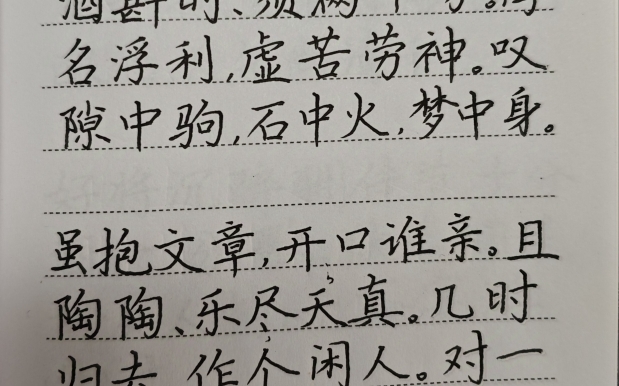 酒斟时、须满十分。浮
名浮利,虚苦劳神。叹
隙中驹,石中火,梦中身。
虽抱文章,开口谁亲。且
陶陶、乐尽天真。几时
归去,作个闲人。对一